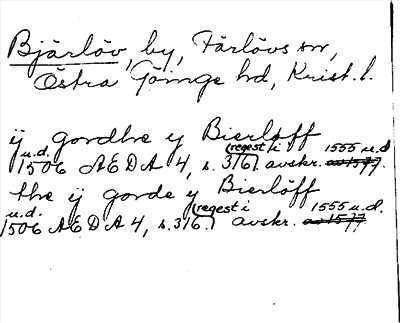 Bjärlöv, by, Färlövs sn,
Östra Göinge hd, Krist. l.
ÿ gordhe y Bierlöff
u.d. 1506 ÆDA 4, s. 316. (regest i avskr. 1555 u.d. av 1577.
the ÿ gorde y Bierlöff
u.d. 1506 ÆDA 4, s. 316. (regest i avskr. 1555 u.d. av 1577